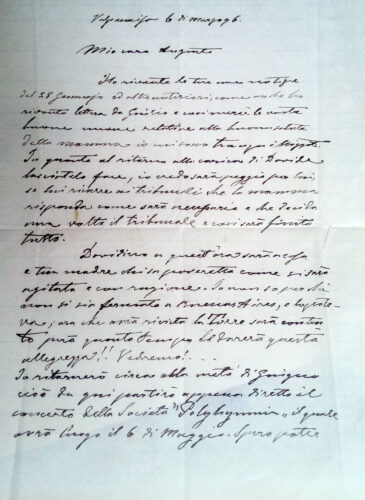 Valparaiso 6 di Marzo 96.
Mio caro Augusto
Ho ricevuto le tue care
del 28 Gennajo ed altre anteriori, come anche ho
ricevuto lettera da Giulio e le vostre
buone nuove relative alla buona salute
della mamma io
In quanto al ritorno alla carica di Davide
lasciatelo fare, io credo sarà peggio per lui
se lui ricorre ai tribunali che la mamma
risponda come sarà necessario e che decida
una volta il tribunale e così sarà finito
tutto.
Davidino a quest'ora sarà a casa
e tua madre chissà poveretta come si sarà
agitata e con ragione. Io non so perchè
non si sia fermato a Buenos Aires, e lo
ora che avrà rivisto la Torre sarà conten
to però quanto tempo le durerà questa
allegrezza!! Vedremo!...
Io ritornerò circa alla metà di Giugno
cioè da qui partirò appena diretto il
concerto della Società "Polyhymnia" il quale
avrà luogo il 6 di Maggio. Spero